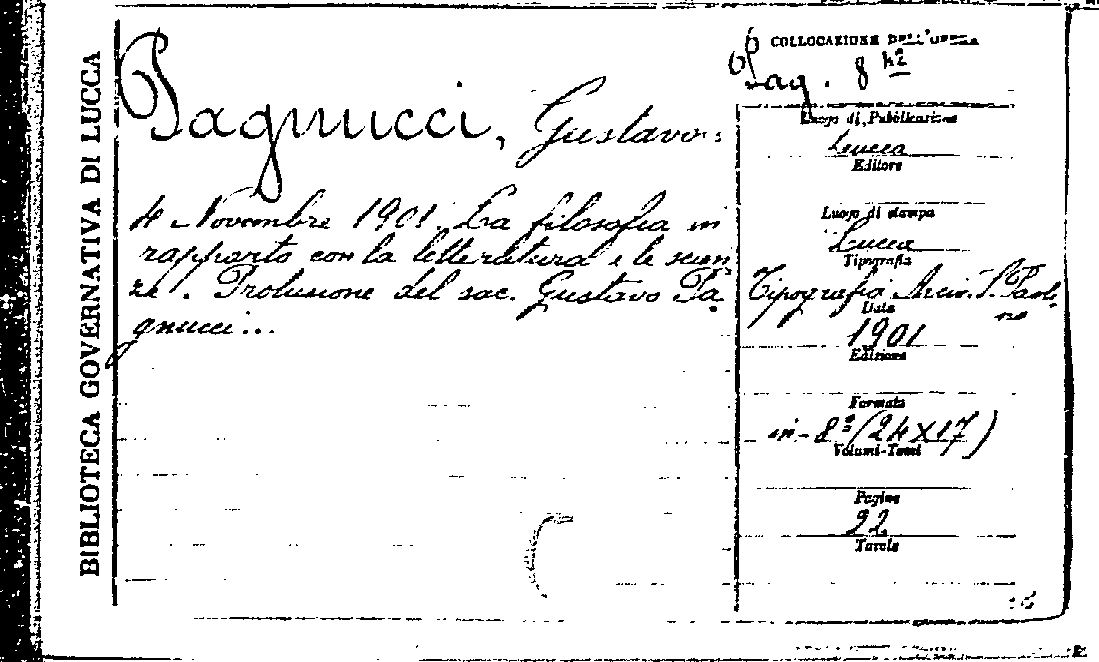 BIBLIOTECA GOVERNATIVA DI LUCCA
Pagnucci, Gustavo:
4 Novembre 1901. La filosofia in
rapporto con la letteratura e le scien
ze. Prolusione del sac. Gustavo Pa-
gnucci...
COLLOCAZIONE DELL'OPERA
Pag. 8
Luogo di Pubblicazione
Lucca
Editore
Luogo di stampa
Lucca
Tipografia
Tipografia Arciv. S. Paoli-
no
Data
1901
Edizione
Formato
in-8° (24X17)
Volumi-Tomi
Pagine
22
Tavole